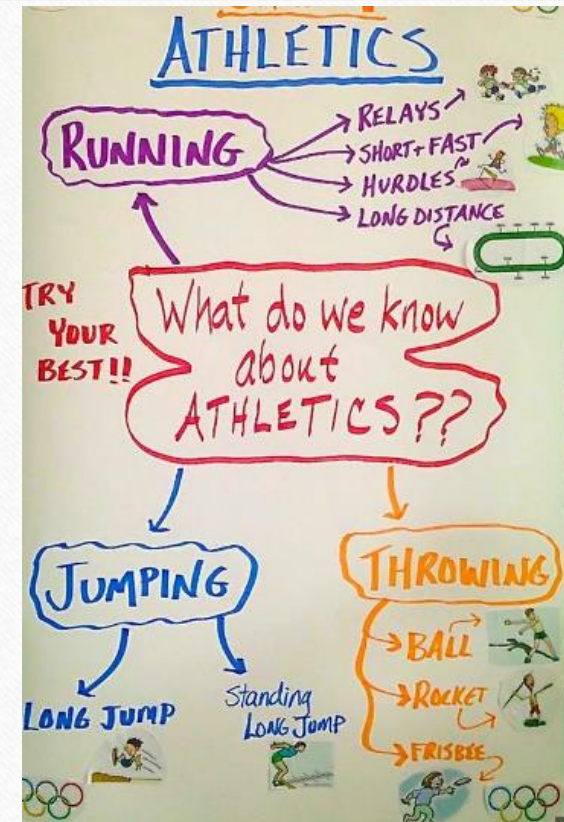 ATHLETICS
RUNNING
RELAYS
SHORT + FAST
HURDLES
LONG DISTANCE
TRY
YOUR
BEST!!
What do we know
about
ATHLETICS??
JUMPING
LONG JUMP
Standing
LONG JUMP
THROWING
BALL
ROCKET
FRISBEE